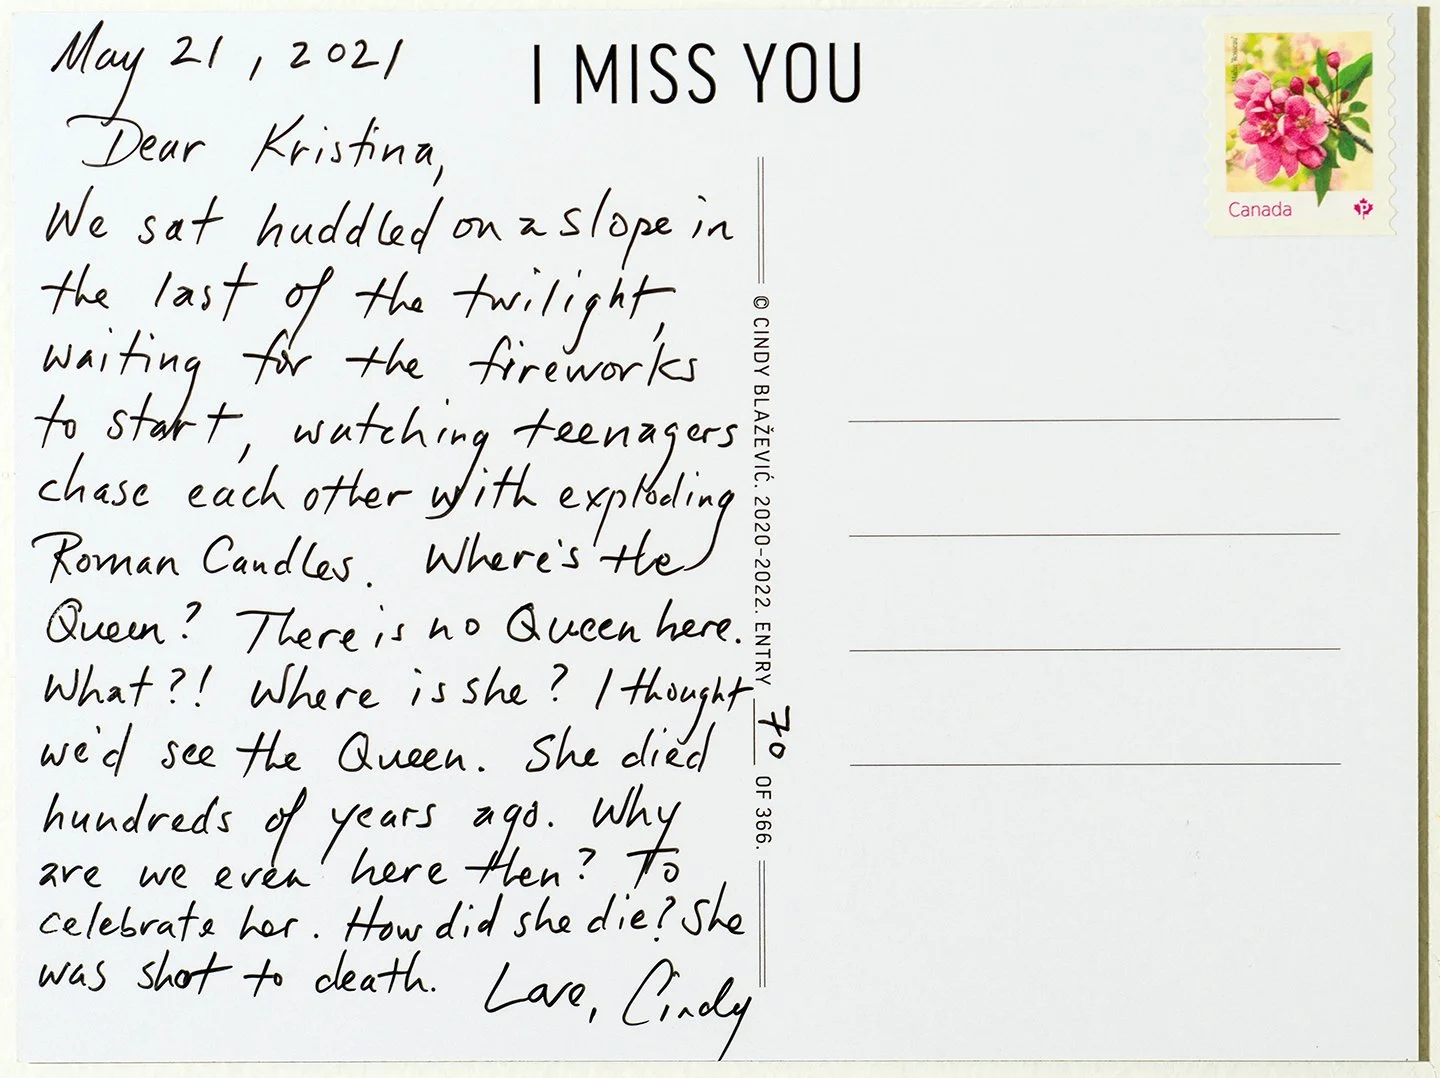 May 21, 2021
I MISS YOU
Dear Kristina,
We sat huddled on a slope in
the last of the twilight,
waiting for the fireworks
to start, watching teenagers
chase each other with exploding
Roman Candles. Where's the
Queen? There is no Queen here.
What?! Where is she? I thought
we'd see the Queen. She died
hundreds of years ago. Why
are we even here then? To
celebrate her. How did she die? She
was shot to death.
Love, Cindy
© CINDY BLAŽEVIĆ. 2020-2022. ENTRY 70 OF 366.
Canada
P